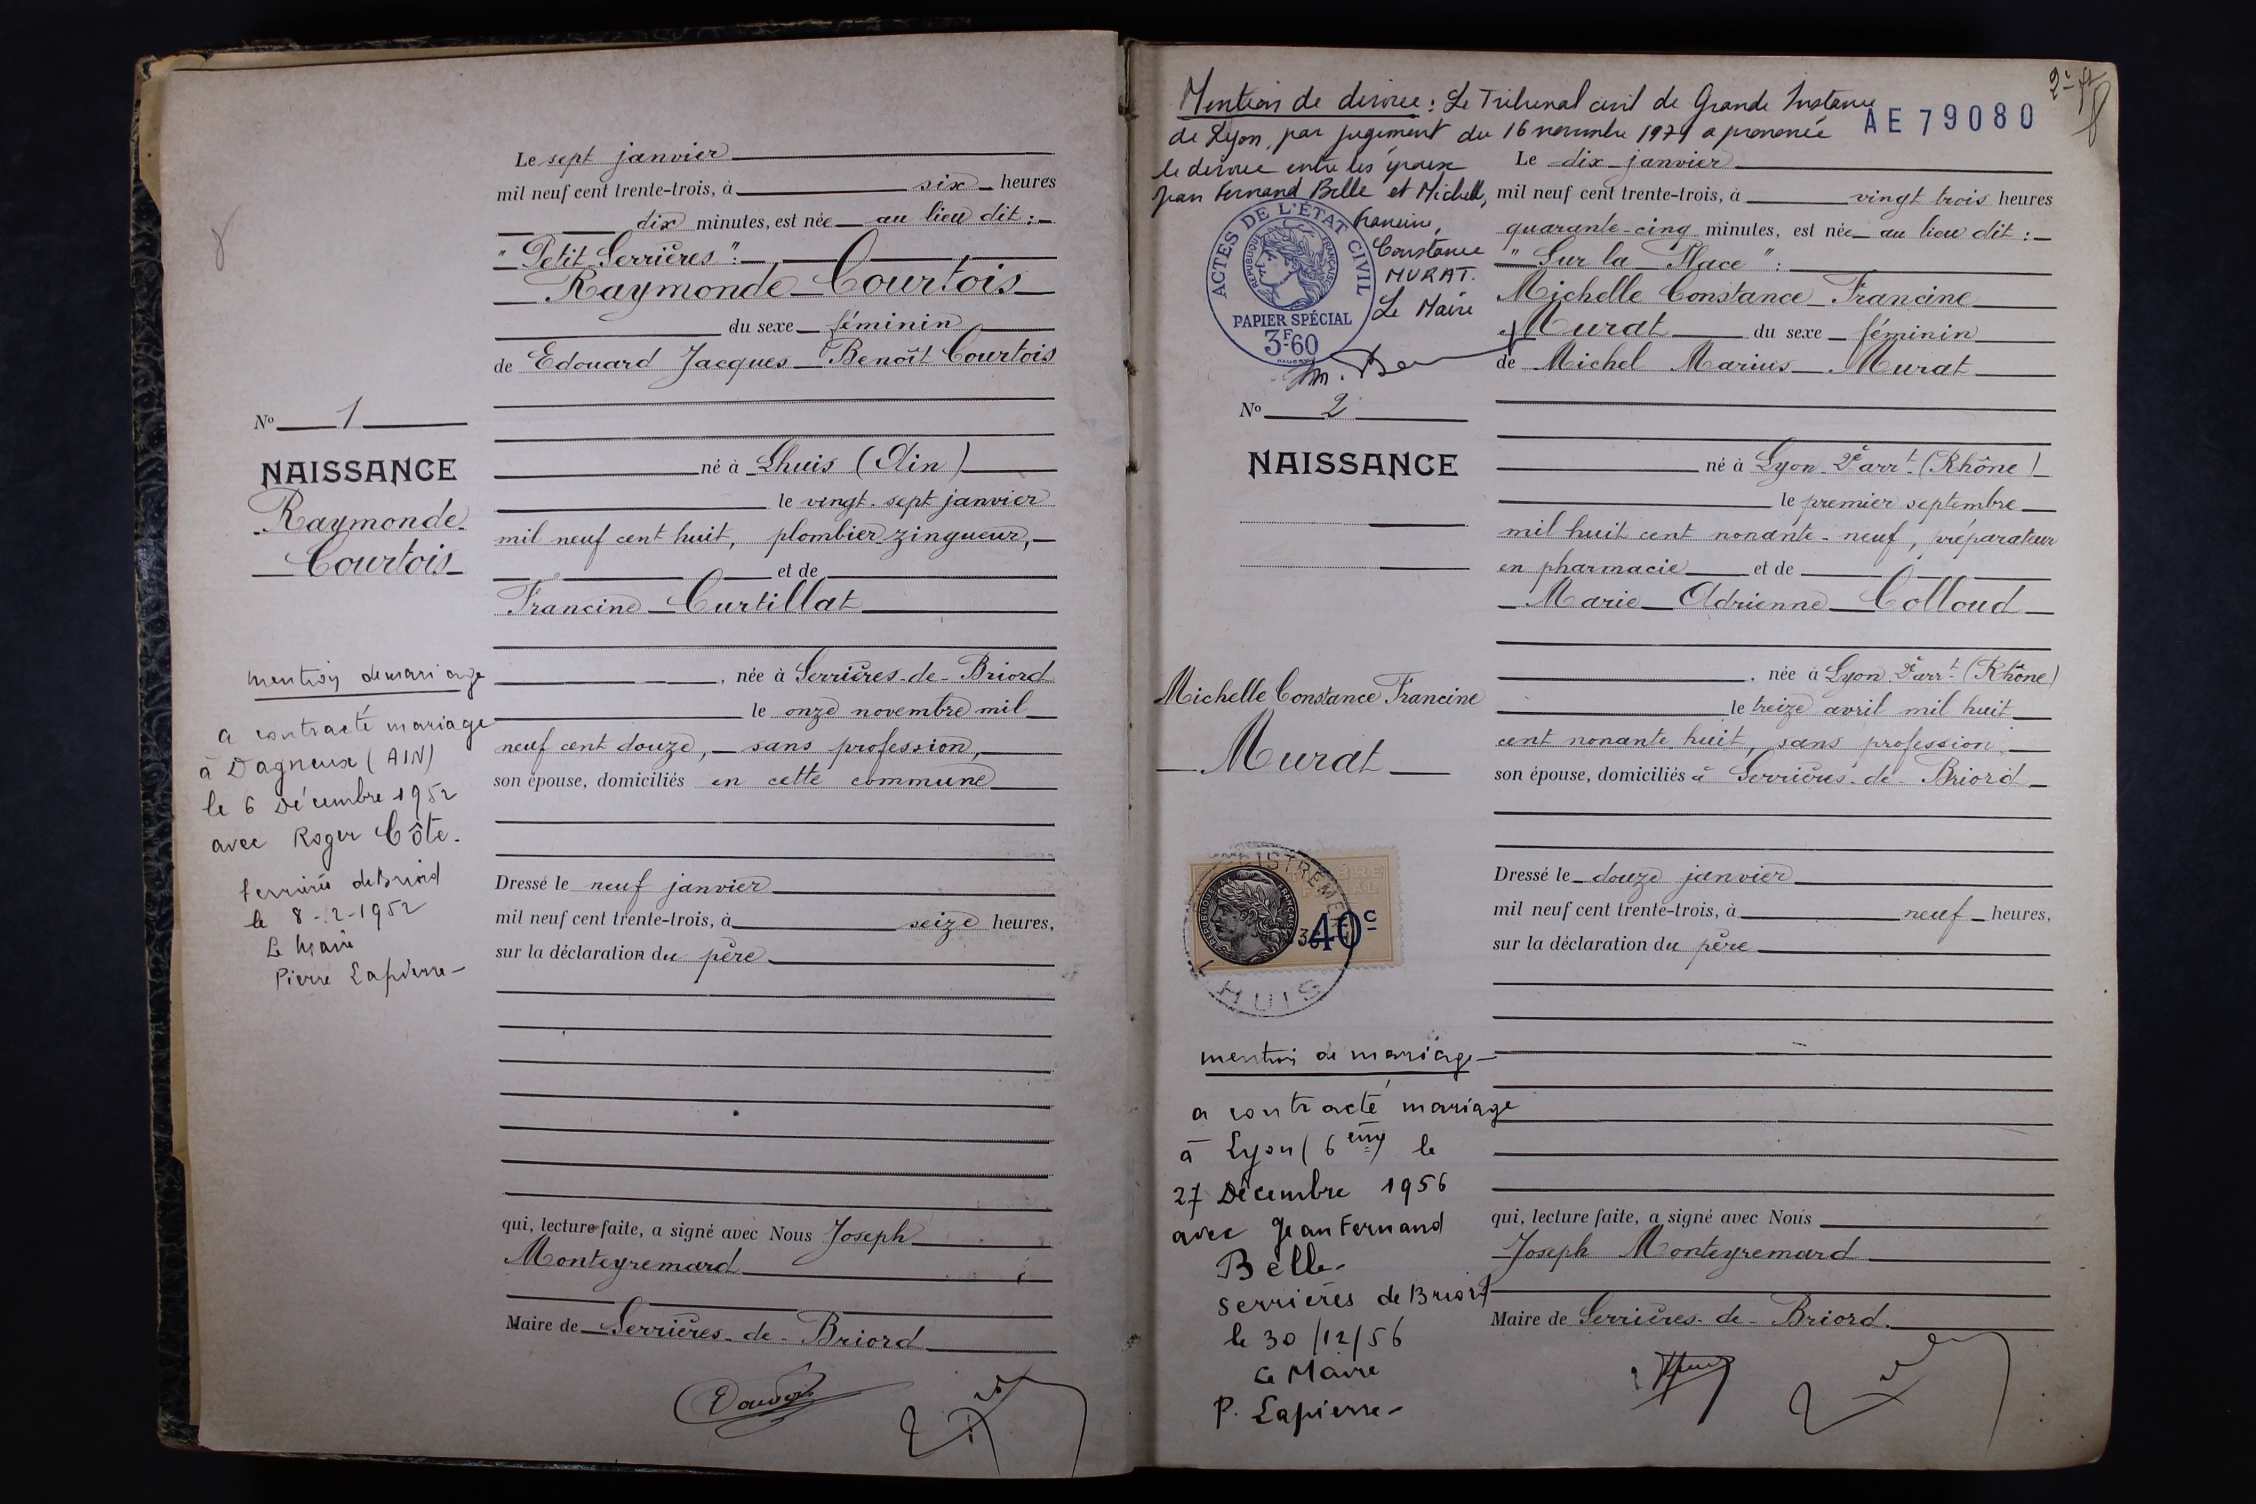 Le sept janvier
mil neuf cent trente-trois, à six heures
dix minutes, est née au lieu dit :
" Petit Serrières " :
Raymonde Courtois
du sexe féminin
de Edouard Jacques Benoît Courtois
No 1
NAISSANCE
Raymonde
Courtois
né à Lhuis (Ain)
le vingt-sept janvier
mil neuf cent huit, plombier zingueur,
et de
Francine Curtillat
, née à Serrières-de-Briord
le onze novembre mil
neuf cent douze, sans profession,
son épouse, domiciliés en cette commune
mention de mariage
a contracté mariage
à Dagneux (AIN)
le 6 Décembre 1952
avec Roger Côte.
Serrières de Briord
le 8-12-1952
Le Maire
Pierre Lapierre
Dressé le neuf janvier
mil neuf cent trente-trois, à seize heures,
sur la déclaration du père
qui, lecture faite, a signé avec Nous Joseph
Monteyremard
Maire de Serrières-de-Briord
2è
AE 79080
Mention de divorce : Le Tribunal civil de Grande Instance
de Lyon, par jugement du 16 novembre a prononcé
le divorce entre les époux
Jean Fernand Belle et Michelle,
Francine,
Constance
MURAT.
Le Maire
ACTES DE L'ÉTAT CIVIL
RÉPUBLIQUE FRANÇAISE
PAPIER SPÉCIAL
3F60
Le dix janvier
mil neuf cent trente-trois, à vingt trois heures
quarante-cinq minutes, est née au lieu dit :
" Sur la Place " :
Michelle Constance Francine
Murat du sexe féminin
de Michel Marius Murat
No 2
NAISSANCE
né à Lyon 2e arrt (Rhône)
le premier septembre
mil huit cent nonante-neuf, préparateur
en pharmacie et de
Marie Adrienne Colloud
, née à Lyon 2e arrt (Rhône)
le treize avril mil huit
cent nonante huit, sans profession,
son épouse, domiciliés à Serrières-de-Briord
Michelle Constance Francine
Murat
RÉPUBLIQUE FRANÇAISE
40c
LHUIS
Dressé le douze janvier
mil neuf cent trente-trois, à neuf heures,
sur la déclaration du père
mention de mariage
a contracté mariage
à Lyon (6ème) le
27 Décembre 1956
avec Jean Fernand
Belle
Serrières de Briord
le 30/12/56
Le Maire
P. Lapierre
qui, lecture faite, a signé avec Nous
Joseph Monteyremard
Maire de Serrières-de-Briord.